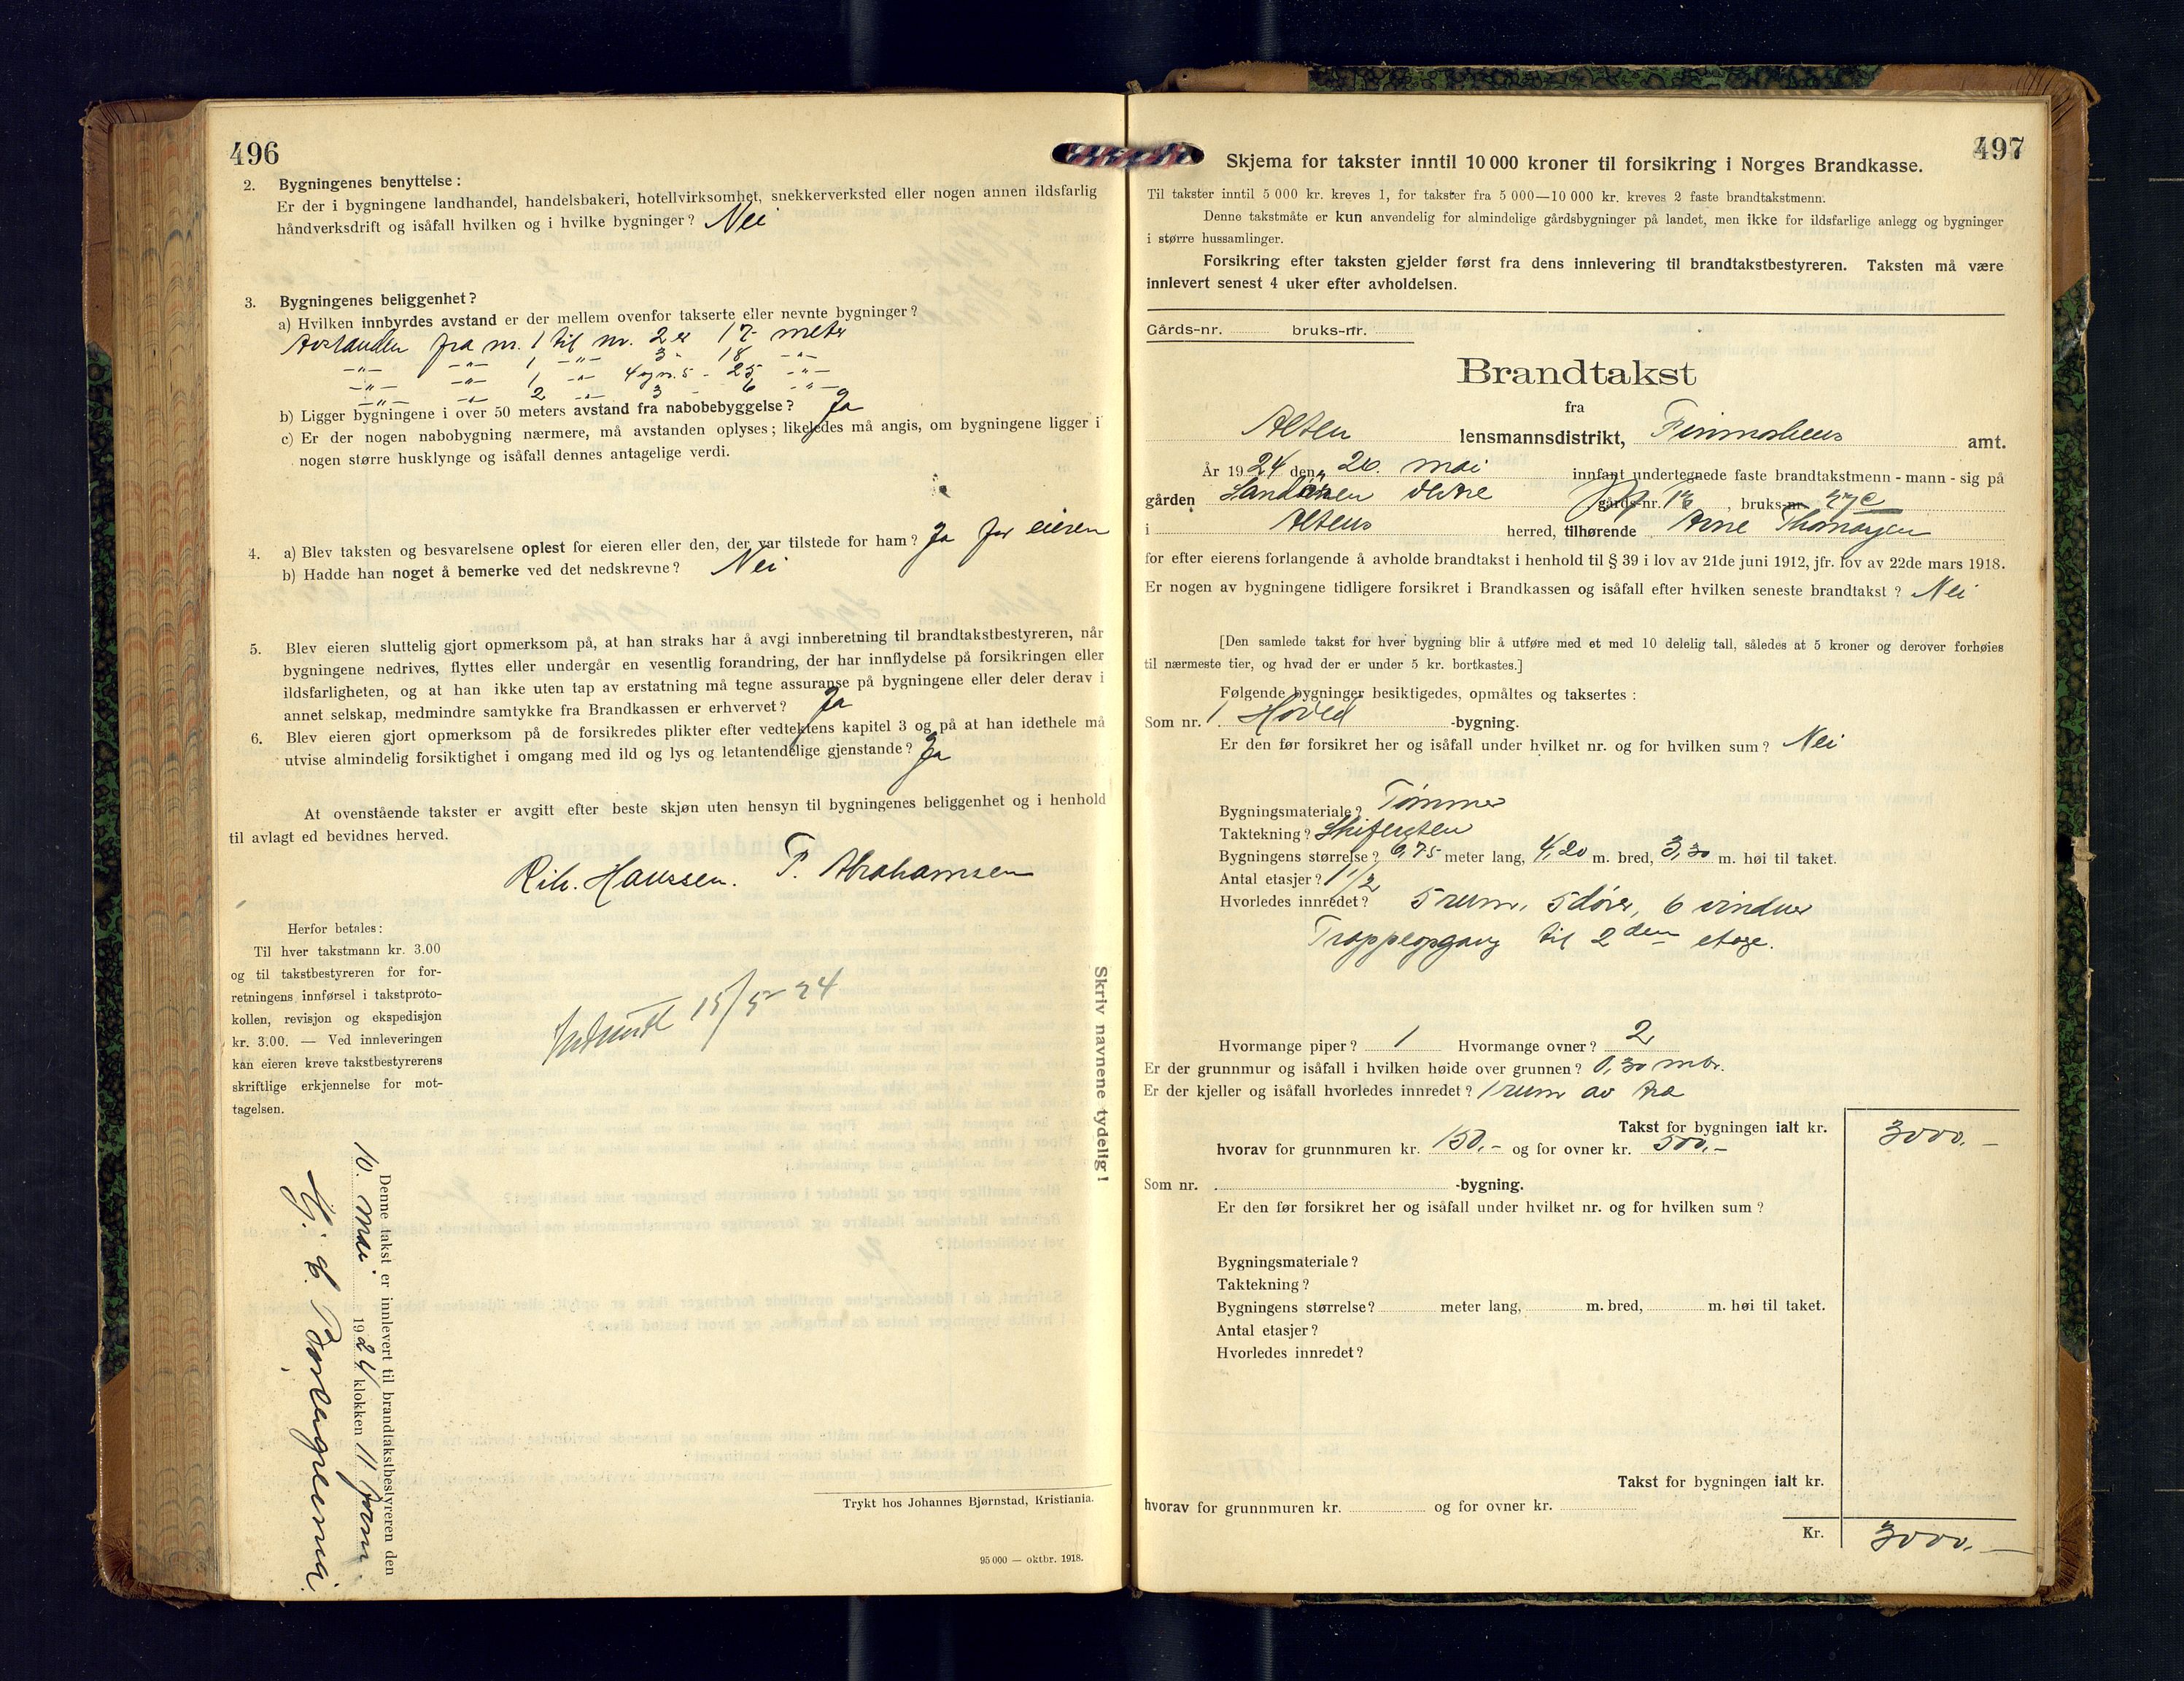 496
2. Bygningenes benyttelse:
Er der i bygningene landhandel, handelsbakeri, hotellvirksomhet, snekkerverksted eller nogen annen ildsfarlig
håndverksdrift og isåfall hvilken og i hvilke bygninger? Nei
3. Bygningenes beliggenhet?
a) Hvilken innbyrdes avstand er der mellem ovenfor takserte eller nevnte bygninger?
Avstanden fra nr. 1 til nr. 2 er 17 meter
-"- -"- 1 -"- 3 - 18 -"-
-"- -"- 1 -"- 4 og nr. 5 - 25 -"-
-"- -"- 2 -"- 3 - 6 -"-
b) Ligger bygningene i over 50 meters avstand fra nabobebyggelse? Ja
c) Er der nogen nabobygning nærmere, må avstanden oplyses; likeledes må angis, om bygningene ligger i
nogen større husklynge og isåfall dennes antagelige verdi.
4. a) Blev taksten og besvarelsene oplest for eieren eller den, der var tilstede for ham? Ja for eieren
b) Hadde han noget å bemerke ved det nedskrevne? Nei
5. Blev eieren sluttelig gjort opmerksom på, at han straks har å avgi innberetning til brandtakstbestyreren, når
bygningene nedrives, flyttes eller undergår en vesentlig forandring, der har innflydelse på forsikringen eller
ildsfarligheten, og at han ikke uten tap av erstatning må tegne assuranse på bygningene eller deler derav i
annet selskap, medmindre samtykke fra Brandkassen er erhvervet? Ja
6. Blev eieren gjort opmerksom på de forsikredes plikter efter vedtektens kapitel 3 og på at han idethele må
utvise almindelig forsiktighet i omgang med ild og lys og letantendelige gjenstande? Ja
At ovenstående takster er avgitt efter beste skjøn uten hensyn til bygningenes beliggenhet og i henhold
til avlagt ed bevidnes herved.
Rih. Hanssen. P. Abrahamsen
Herfor betales:
Til hver takstmann kr. 3.00
og til takstbestyreren for for-
retningens innførsel i takstproto-
kollen, revisjon og ekspedisjon
kr. 3.00. — Ved innleveringen
kan eieren kreve takstbestyrerens
skriftlige erkjennelse for mot-
tagelsen.
15/5 24
Skriv navnene tydelig!
Denne takst er innlevert til brandtakstbestyreren den
10. mai 1924 klokken 11 form.
Trykt hos Johannes Bjørnstad, Kristiania.
95 000 — oktbr. 1918.
497
Skjema for takster inntil 10 000 kroner til forsikring i Norges Brandkasse.
Til takster inntil 5 000 kr. kreves 1, for takster fra 5 000—10 000 kr. kreves 2 faste brandtakstmenn.
Denne takstmåte er kun anvendelig for almindelige gårdsbygninger på landet, men ikke for ildsfarlige anlegg og bygninger
i større hussamlinger.
Forsikring efter taksten gjelder først fra dens innlevering til brandtakstbestyreren. Taksten må være
innlevert senest 4 uker efter avholdelsen.
Gårds-nr. bruks-nr.
Brandtakst
fra
Alten lensmannsdistrikt, Finmarkens amt.
År 1924 den 26. mai innfant undertegnede faste brandtakstmenn - mann - sig på
gården gårds-nr. , bruks-nr.
i Altens herred, tilhørende Arne Thomassen
for efter eierens forlangende å avholde brandtakst i henhold til § 39 i lov av 21de juni 1912, jfr. lov av 22de mars 1918.
Er nogen av bygningene tidligere forsikret i Brandkassen og isåfall efter hvilken seneste brandtakst? Nei
[Den samlede takst for hver bygning blir å utføre med et med 10 delelig tall, således at 5 kroner og derover forhøies
til nærmeste tier, og hvad der er under 5 kr. bortkastes.]
Følgende bygninger besiktigedes, opmåltes og taksertes:
Som nr. 1 Hoved -bygning.
Er den før forsikret her og isåfall under hvilket nr. og for hvilken sum? Nei
Bygningsmateriale? Tømmer
Taktekning? Skifersten
Bygningens størrelse? 6,75 meter lang, 4,20 m. bred, 3,30 m. høi til taket.
Antal etasjer? 1 1/2
Hvorledes innredet? 5 rum, 5 dører, 6 vinduer
Trappeopgang til 2den etage.
Hvormange piper? 1 Hvormange ovner? 2
Er der grunnmur og isåfall i hvilken høide over grunnen? 0,30 mtr.
Er der kjeller og isåfall hvorledes innredet? 1 rum av træ
Takst for bygningen ialt kr. 3000.-
hvorav for grunnmuren kr. 150,- og for ovner kr. 500,-
Som nr. -bygning.
Er den før forsikret her og isåfall under hvilket nr. og for hvilken sum?
Bygningsmateriale?
Taktekning?
Bygningens størrelse? meter lang, m. bred, m. høi til taket.
Antal etasjer?
Hvorledes innredet?
Takst for bygningen ialt kr.
hvorav for grunnmuren kr. og for ovner kr.
Kr. 3000.-